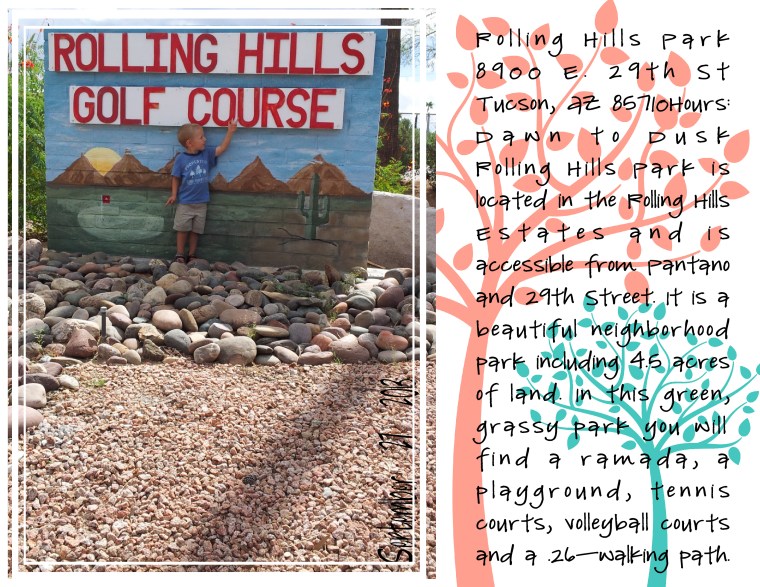 ROLLING HILLS
GOLF COURSE
September 27 2013
Rolling Hills Park
8900 E. 29th St
Tucson, AZ 85710Hours:
Dawn to Dusk
Rolling Hills Park is
located in the Rolling Hills
Estates and is
accessible from Pantano
and 29th Street. It is a
beautiful neighborhood
park including 4.5 acres
of land. In this green,
grassy park you will
find a ramada, a
playground, tennis
courts, volleyball courts
and a .26-walking path.